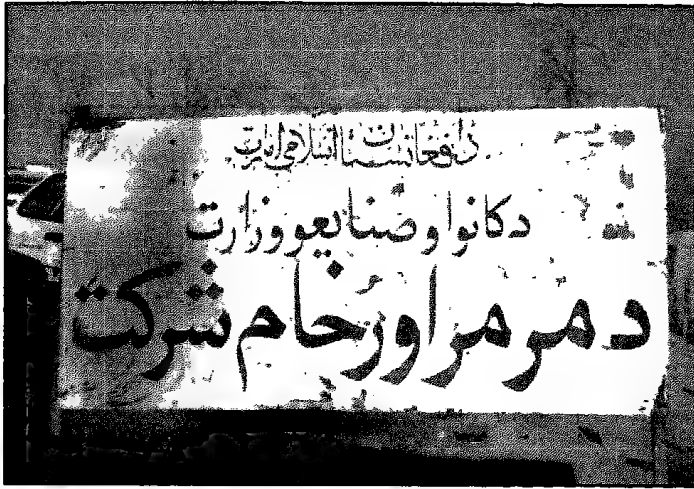 دافغانستان اسلامي امارت
دکانوا و صنایعو وزارت
د مرمر او رخام شرکت